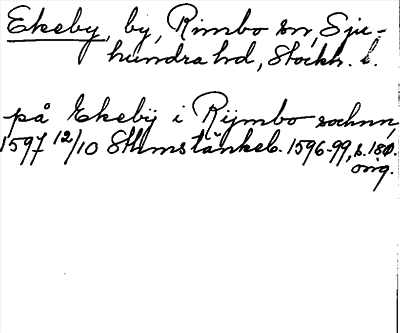 Ekeby, by, Rimbo sn, Sju-
hundra hd, Stockh. l.
på Ekebÿ i Rÿmbo sochnn,
1597 12/10 Sthmstänkeb. 1596-99, s. 180.
orig.